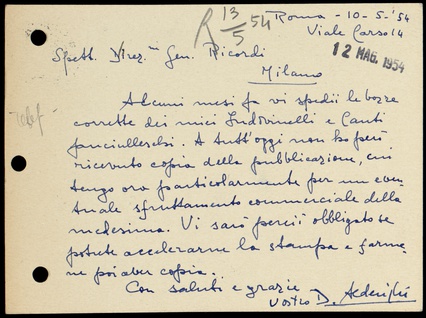 R 13/5 54
Roma - 10-5-'54
Viale Carso 14
12 MAG. 1954
Spett. Direz. Gen. Ricordi
Milano
Alcuni mesi fa vi spedii le bozze
corrette dei miei Indovinelli e Canti
fanciulleschi. A tutt'oggi non ho però
ricevuto copia della pubblicazione, cui
tengo ora particolarmente per un even
tuale sfruttamento commerciale della
medesima. Vi sarò perciò obbligato se
potete accelerarne la stampa e farme
ne poi aver copia.
Con saluti e grazie
vostro D. Alderighi